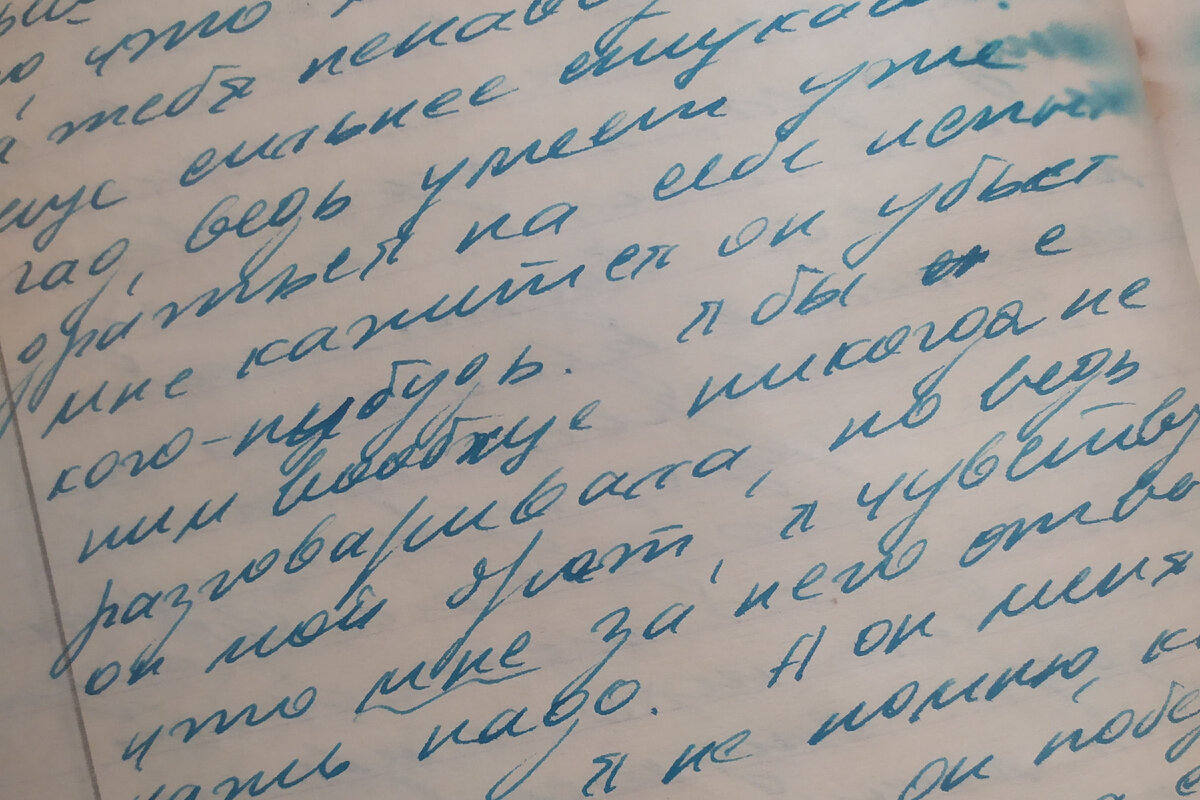 что
тебя ненав
сильнее стукал.
гад, ведь умеет уже
драться на себе испыт
мне кажится он убьет
кого-нибудь. я бы с
ним вообще никогда не
разговаривала, но ведь
он мой брат, я чувству
что мне за него отве
чать надо. А он меня
я не помню, к
он побе